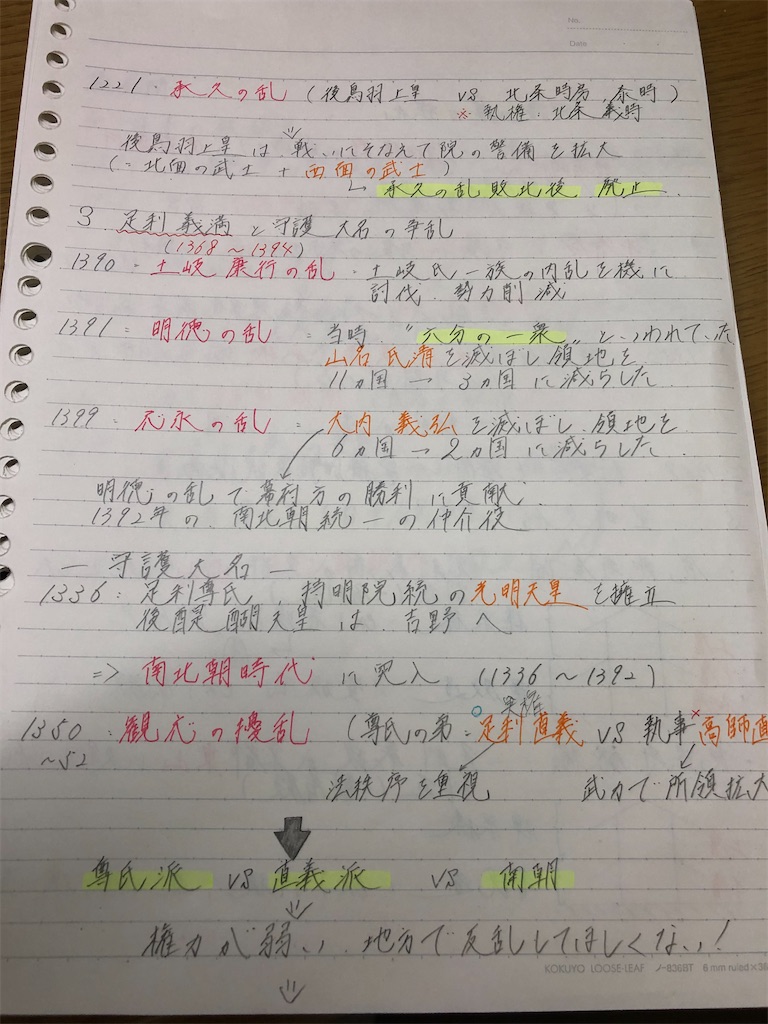 No.
Date
1221・承久の乱（後鳥羽上皇 vs 北条時房、泰時）
※執権・北条義時
後鳥羽上皇は、戦いにそなえて院の警備を拡大
（＝北面の武士＋西面の武士）
↳ 承久の乱敗北後 廃止.
3. 足利義満と守護大名の争乱
（1368〜1394）
1390・土岐康行の乱・土岐氏一族の内乱を機に
討伐. 勢力削減
1391：明徳の乱 ＝当時、“六分の一衆”といわれていた
山名氏清を滅ぼし領地を
11ヵ国→3ヵ国に減らした.
1399：応永の乱 ＝大内義弘を滅ぼし、領地を
6ヵ国→2ヵ国に減らした.
明徳の乱で幕府方の勝利に貢献
1392年の、南北朝統一の仲介役
— 守護大名 —
1336：足利尊氏、持明院統の光明天皇を擁立
後醍醐天皇は、吉野へ
⇒ 南北朝時代に突入（1336〜1392）
実権
1350：観応の擾乱（尊氏の弟：○足利直義 vs 執事×高師直
〜52
法秩序を重視 武力で所領拡大
尊氏派 vs 直義派 vs 南朝
権力が弱い、地方で反乱してほしくない！
KOKUYO LOOSE-LEAF ノ-836BT 6 mm ruled×36